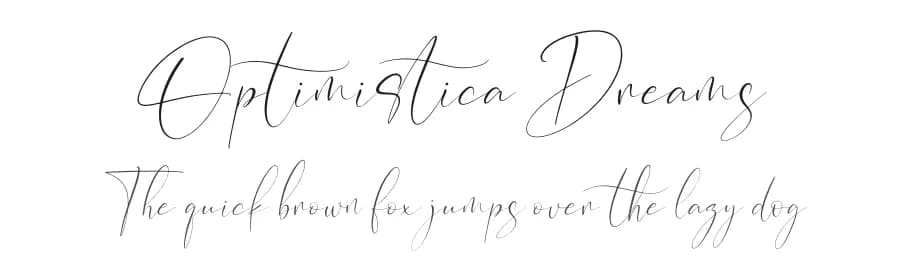 Optimistica Dreams
The quick brown fox jumps over the lazy dog